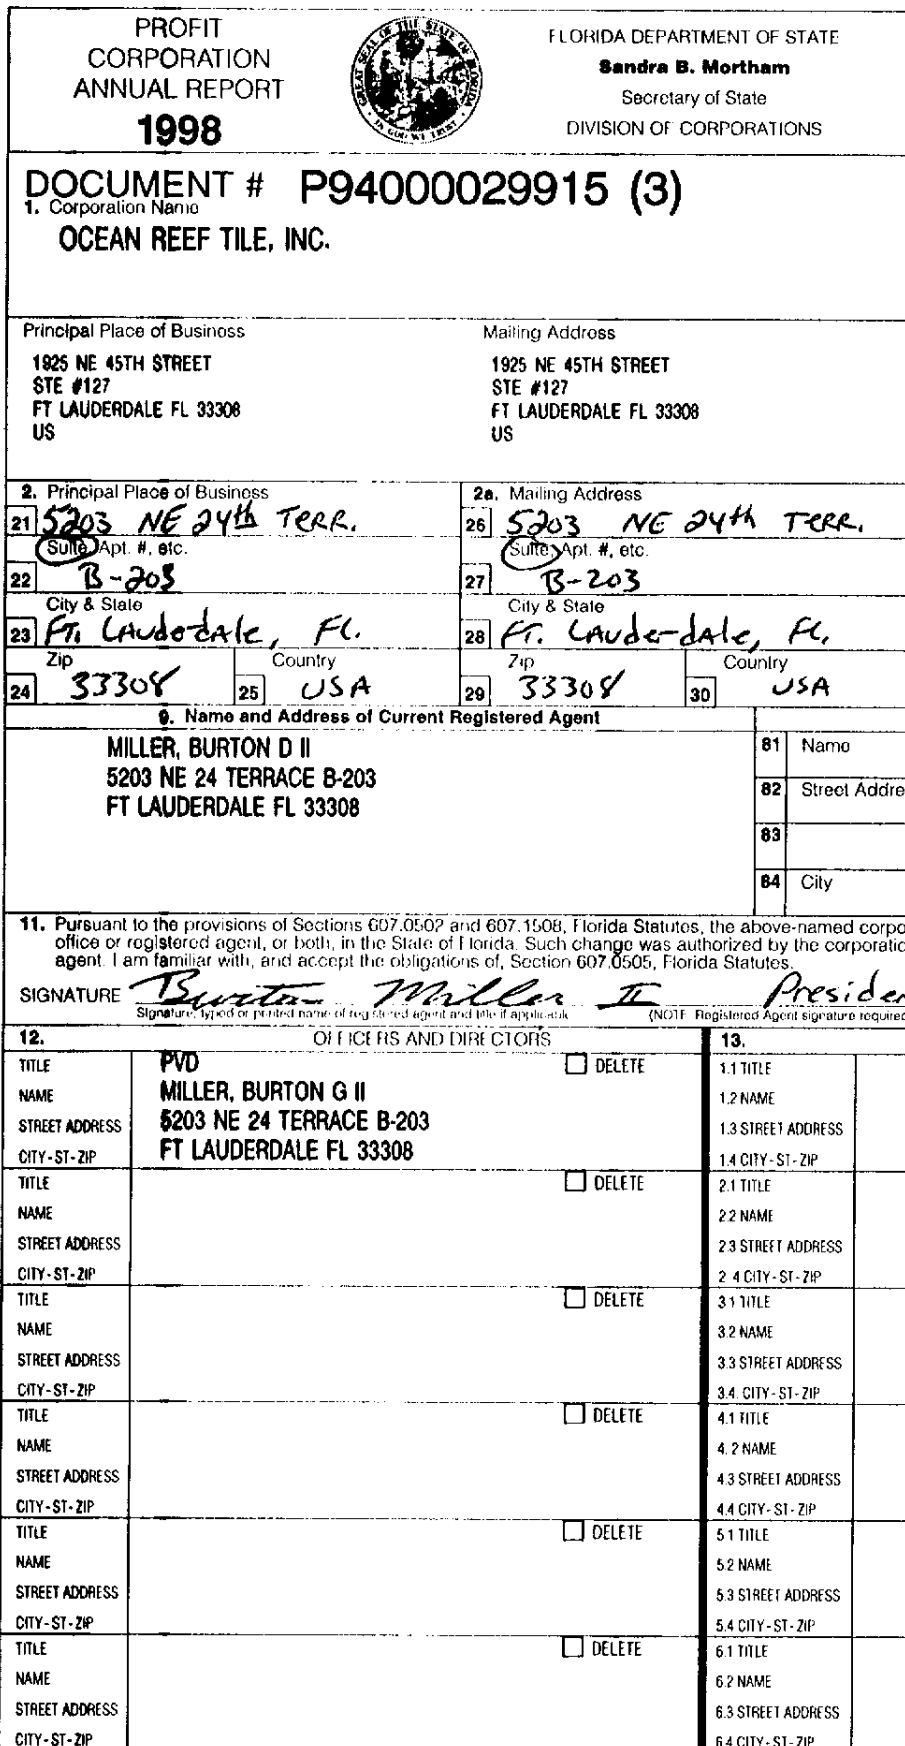 PROFIT
CORPORATION
ANNUAL REPORT
1998
GREAT SEAL OF THE STATE OF FLORIDA
IN GOD WE TRUST
FLORIDA DEPARTMENT OF STATE
Sandra B. Mortham
Secretary of State
DIVISION OF CORPORATIONS
DOCUMENT # P94000029915 (3)
1. Corporation Name
OCEAN REEF TILE, INC.
Principal Place of Business
1925 NE 45TH STREET
STE #127
FT LAUDERDALE FL 33308
US
Mailing Address
1925 NE 45TH STREET
STE #127
FT LAUDERDALE FL 33308
US
2. Principal Place of Business
21 5203 NE 24th TERR.
Suite, Apt. #, etc.
22 B-203
City & State
23 FT. LAuderdAle, FL.
Zip
24 33308
Country
25 USA
2a. Mailing Address
26 5203 NE 24th TERR.
Suite, Apt. #, etc.
27 B-203
City & State
28 FT. LAuderdAle, FL.
Zip
29 33308
Country
30 USA
9. Name and Address of Current Registered Agent
MILLER, BURTON D II
5203 NE 24 TERRACE B-203
FT LAUDERDALE FL 33308
81 Name
82 Street Addre
83
84 City
11. Pursuant to the provisions of Sections 607.0502 and 607.1508, Florida Statutes, the above-named corpo
office or registered agent, or both, in the State of Florida. Such change was authorized by the corporatio
agent. I am familiar with, and accept the obligations of, Section 607.0505, Florida Statutes.
SIGNATURE Burton Miller II Presiden
Signature, typed or printed name of registered agent and title if applicable (NOTE Registered Agent signature required
12. OFFICERS AND DIRECTORS
TITLE PVD DELETE
NAME MILLER, BURTON G II
STREET ADDRESS 5203 NE 24 TERRACE B-203
CITY-ST-ZIP FT LAUDERDALE FL 33308
TITLE DELETE
NAME
STREET ADDRESS
CITY-ST-ZIP
TITLE DELETE
NAME
STREET ADDRESS
CITY-ST-ZIP
TITLE DELETE
NAME
STREET ADDRESS
CITY-ST-ZIP
TITLE DELETE
NAME
STREET ADDRESS
CITY-ST-ZIP
TITLE DELETE
NAME
STREET ADDRESS
CITY-ST-ZIP
13.
1.1 TITLE
1.2 NAME
1.3 STREET ADDRESS
1.4 CITY-ST-ZIP
2.1 TITLE
2.2 NAME
2.3 STREET ADDRESS
2.4 CITY-ST-ZIP
3.1 TITLE
3.2 NAME
3.3 STREET ADDRESS
3.4. CITY-ST-ZIP
4.1 TITLE
4.2 NAME
4.3 STREET ADDRESS
4.4 CITY-ST-ZIP
5.1 TITLE
5.2 NAME
5.3 STREET ADDRESS
5.4 CITY-ST-ZIP
6.1 TITLE
6.2 NAME
6.3 STREET ADDRESS
6.4 CITY-ST-ZIP